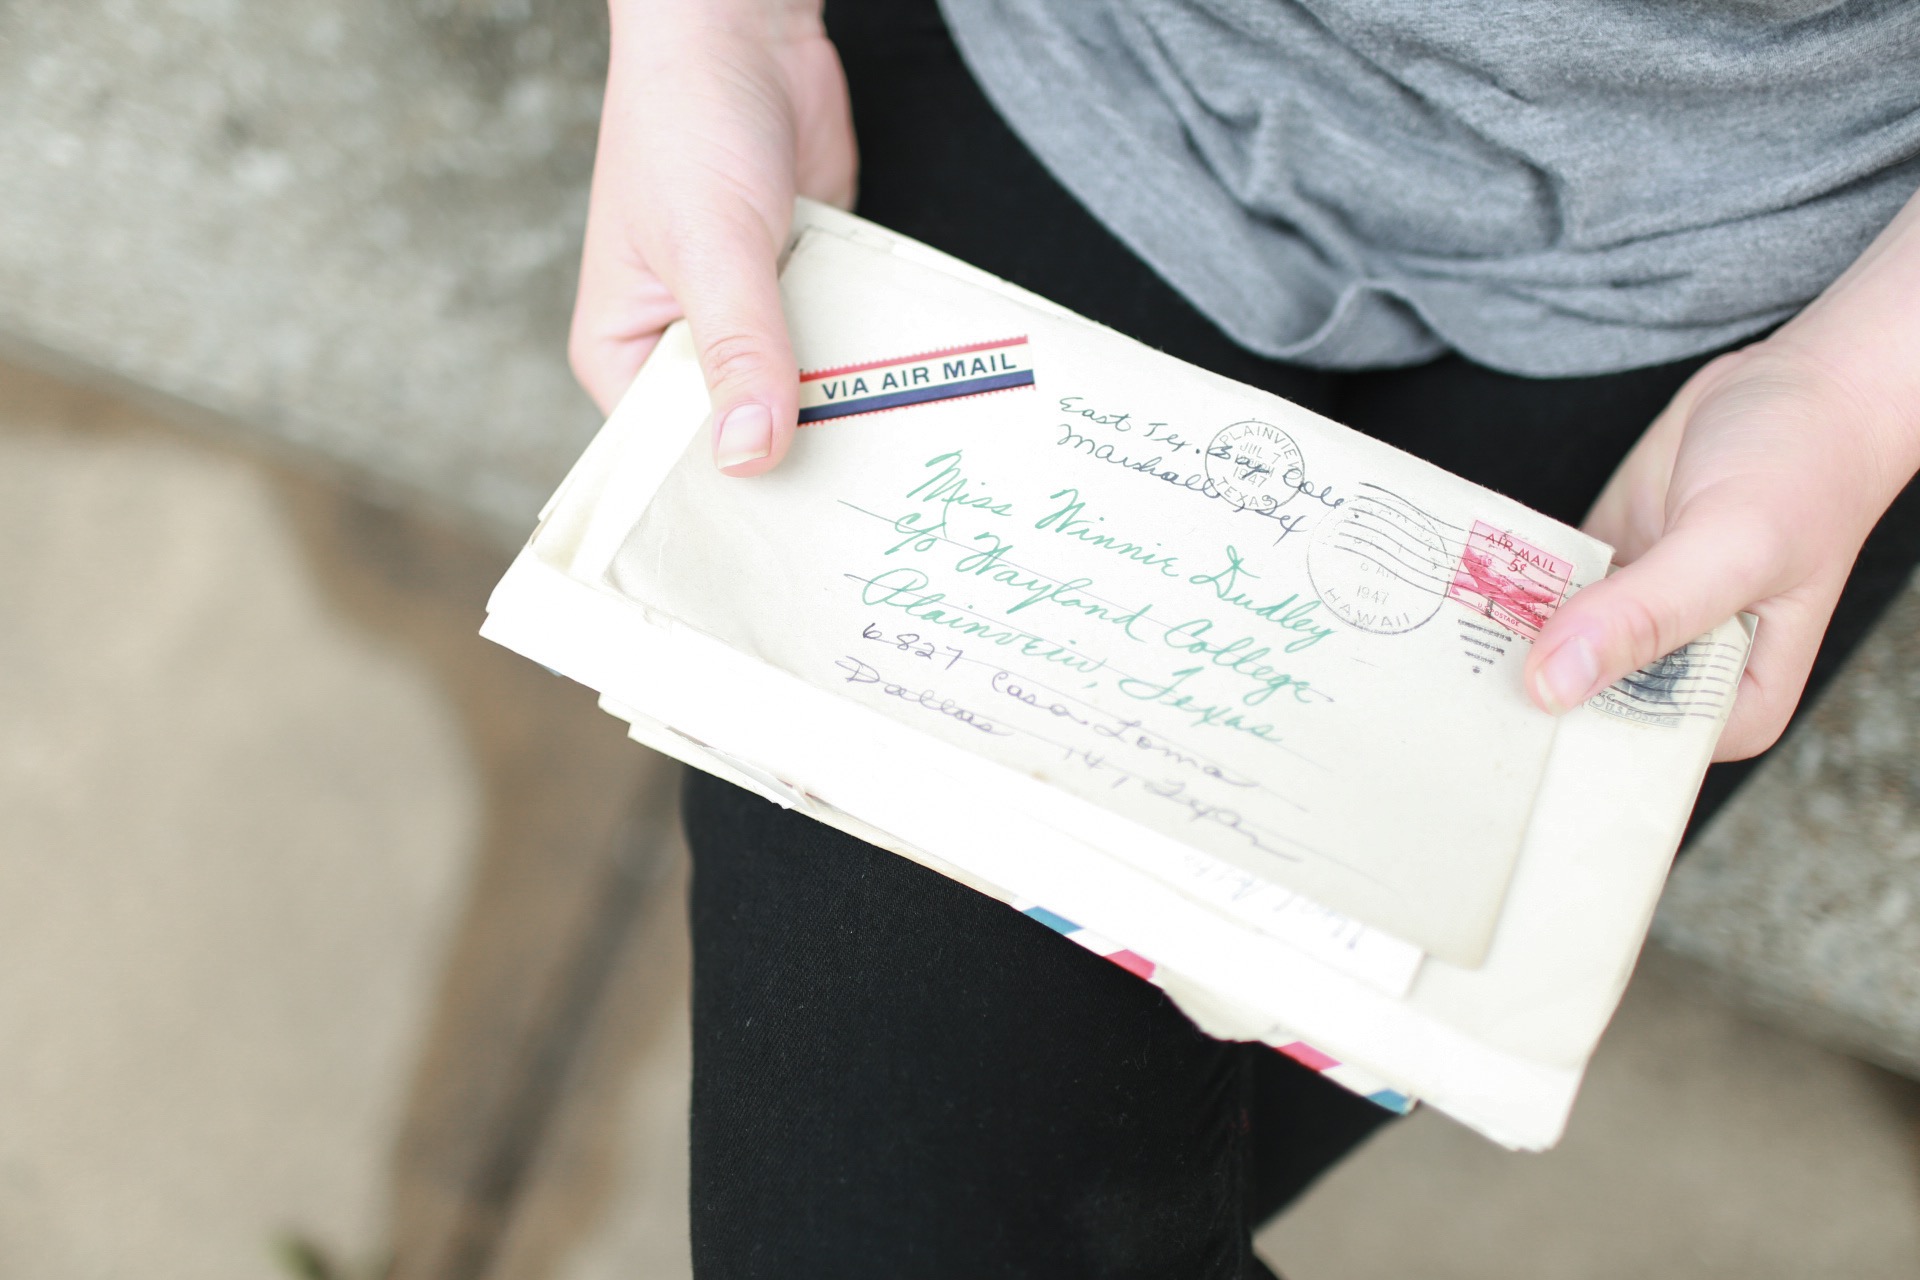 VIA AIR MAIL
East Tex. Bap. Colle.
Marshall, Tex
PLAINVIEW
JUL 7
1947
TEXAS
1947
HAWAII
AIR MAIL
5¢
U.S. POSTAGE
Miss Winnie Dudley
c/o Wayland College
Plainveiw, Texas
6827 Casa Loma
Dallas 14, Texas
U.S. POSTAGE